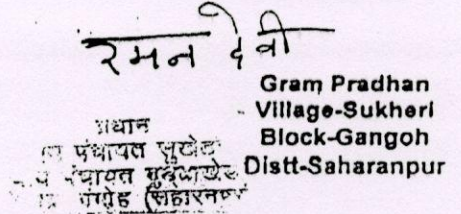 रमन देवी
Gram Pradhan
Village-Sukheri
Block-Gangoh
Distt-Saharanpur
प्रधान
पंचायत सुखेडी
पंचायत
गंगोह (सहारनपुर